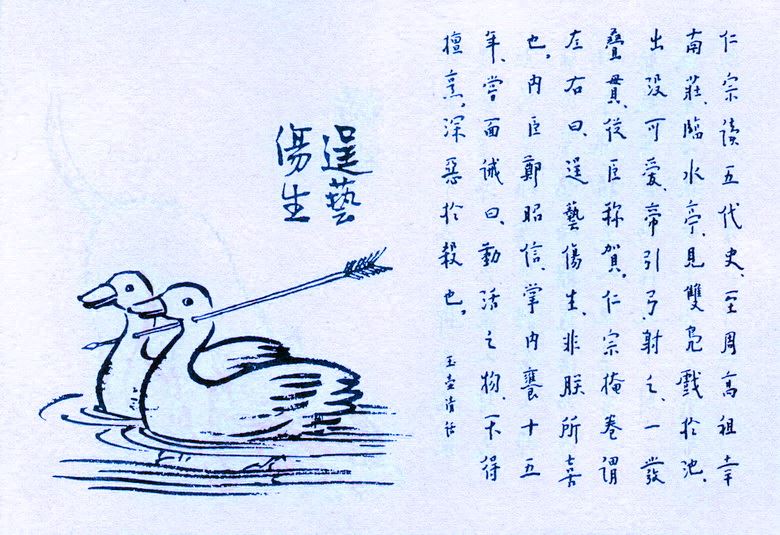 仁宗讀五代史、至周高祖幸
南莊、臨水亭、見雙鳧戲於池、
出沒可愛、帝引弓射之、一發
疊貫、從臣稱賀。仁宗掩卷謂
左右曰、逞藝傷生、非朕所喜
也。內臣鄭昭信、掌內饔十五
年、嘗面誡曰、動活之物、不得
擅烹。深惡於殺也。 玉壺清話
逞藝
傷生